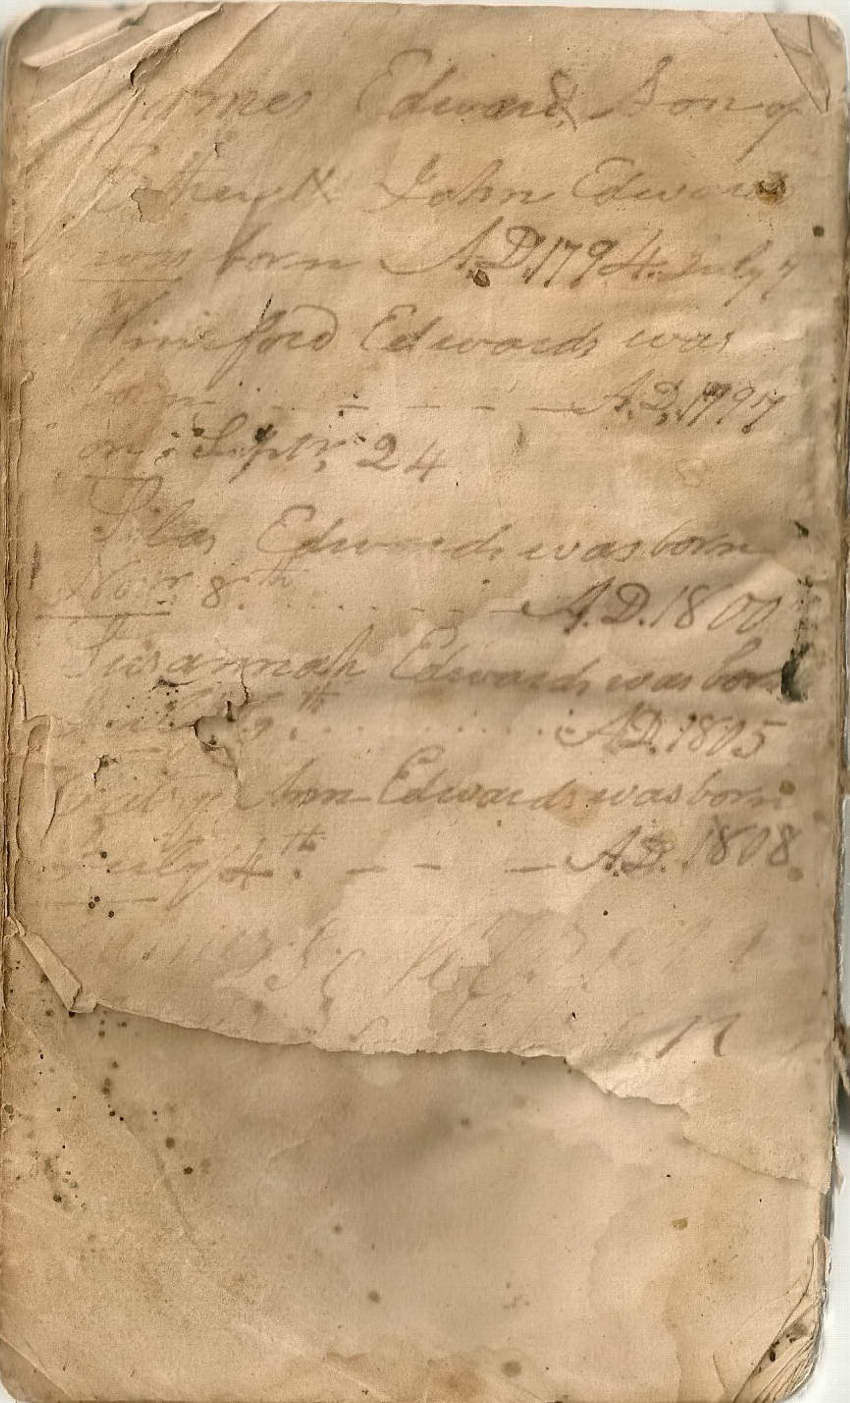 James Edwards Son of
& John Edwards
was born A.D. 1794. July 7
Wineford Edwards was
born - - - - - A.D. 1797
on Septr. 24
Silas Edwards was born
Novr. 8th . . . . - - - A.D. 1800
Susannah Edwards was born
6th . . . . . . . . A.D. 1805
Ann Edwards was born
July 4th. - - - A.D. 1808